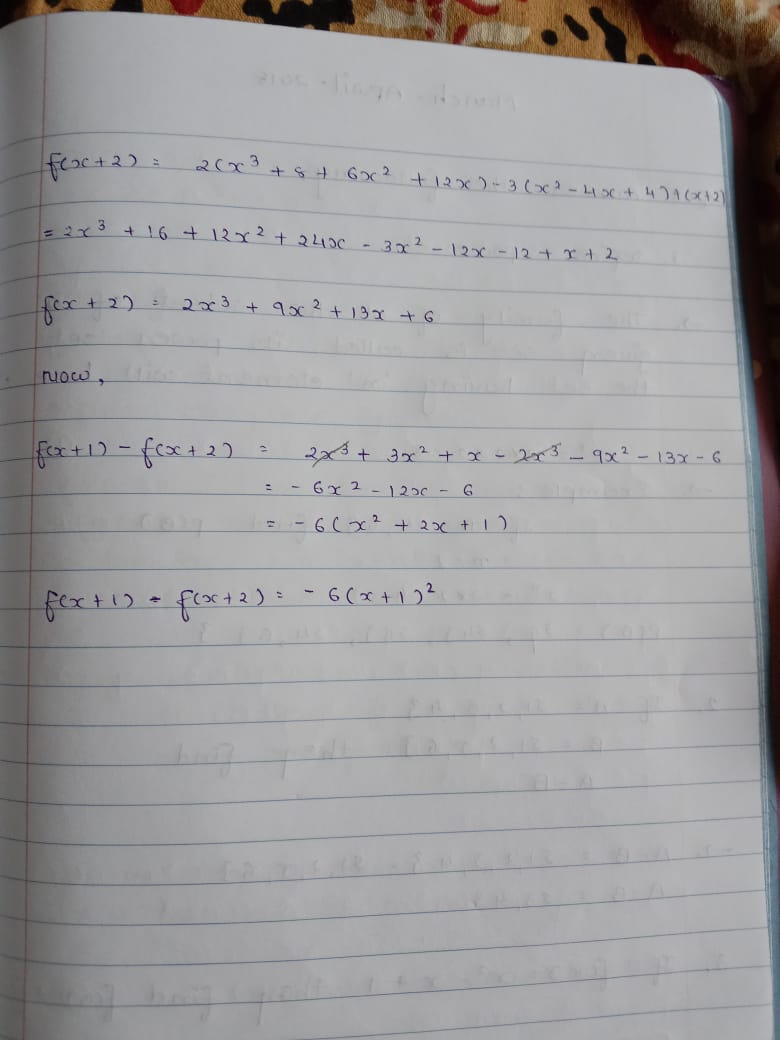 f(x+2) = 2(x³ + 8 + 6x² + 12x) - 3(x² - 4x + 4) + (x+2)
= 2x³ + 16 + 12x² + 24x - 3x² - 12x - 12 + x + 2
f(x+2) = 2x³ + 9x² + 13x + 6
now,
f(x+1) - f(x+2) = 2x³ + 3x² + x - 2x³ - 9x² - 13x - 6
= - 6x² - 12x - 6
= - 6(x² + 2x + 1)
f(x+1) - f(x+2) = - 6(x+1)²